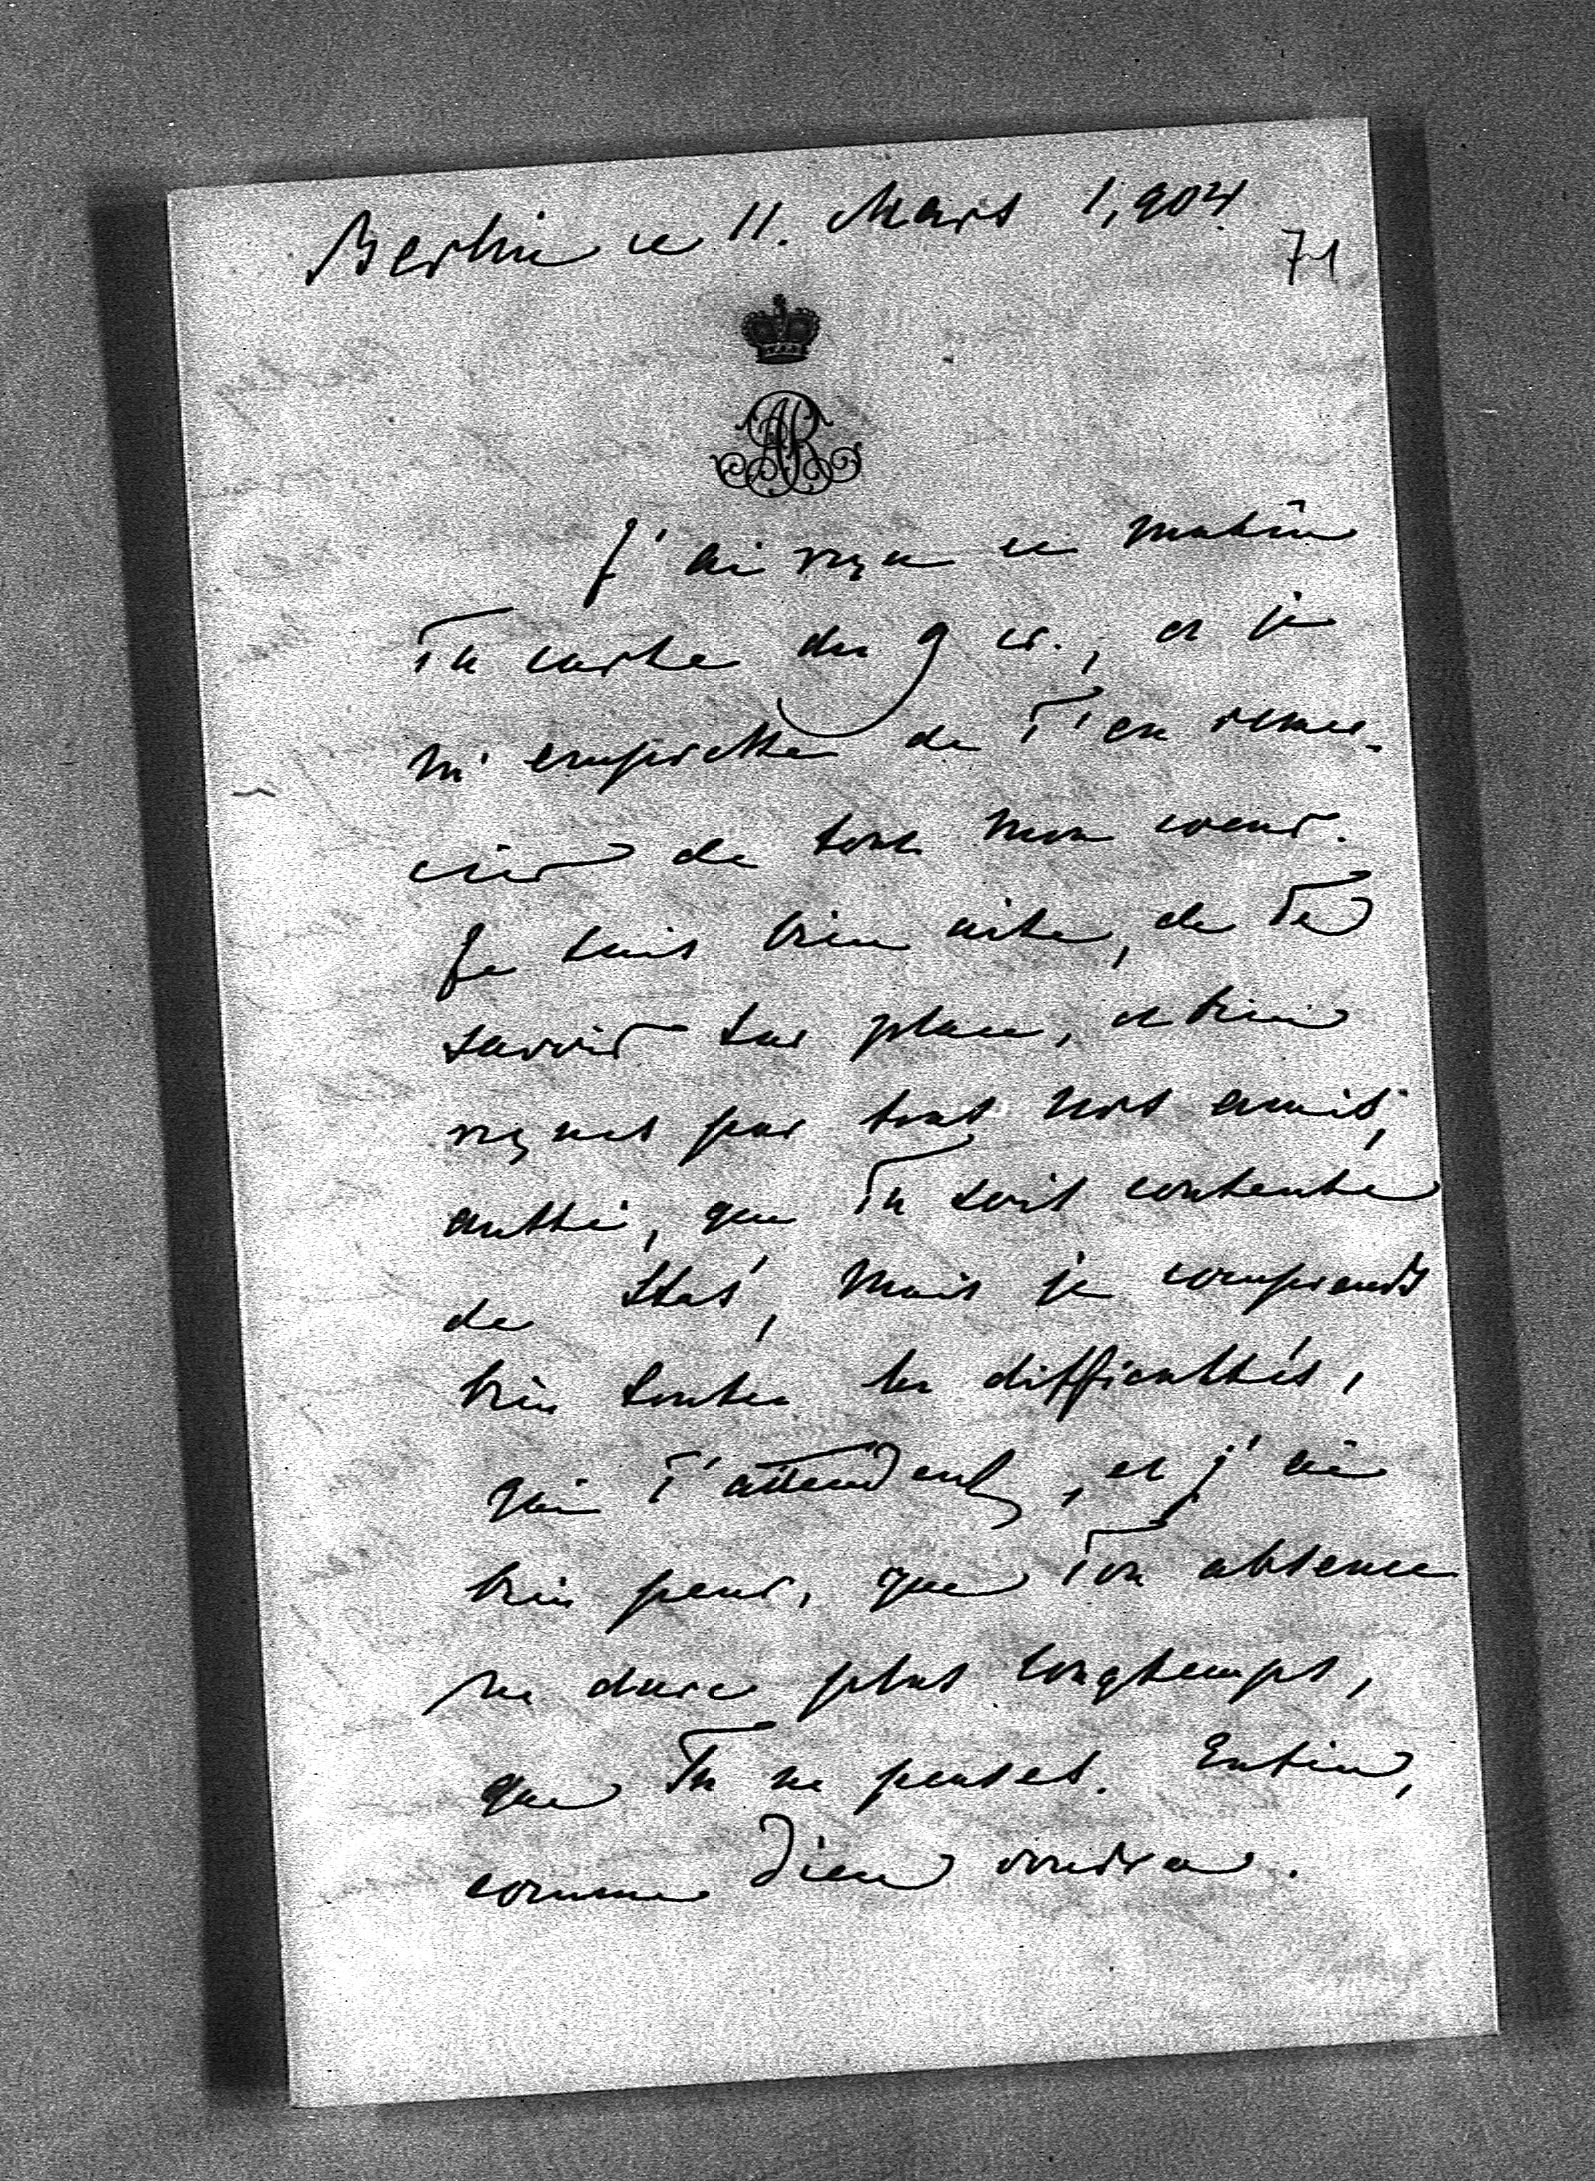 Berlin ce 11. Mars 1,904.
71
AR
J'ai reçu ce matin
Ta carte du 9 cr., et je
m'empresse de T'en remer-
cier de tout mon coeur.
Je suis bien aise, de Te
savoir sur place, et bien
reçues par tous nos amis,
aussi, que Tu sois contente
de Stas, mais je comprends
bien toutes les difficultés,
qui T'attendent, et j'ai
bien peur, que Ton absence
ne dure plus longtemps,
que Tu ne penses. Enfin,
comme Dieu voudra.